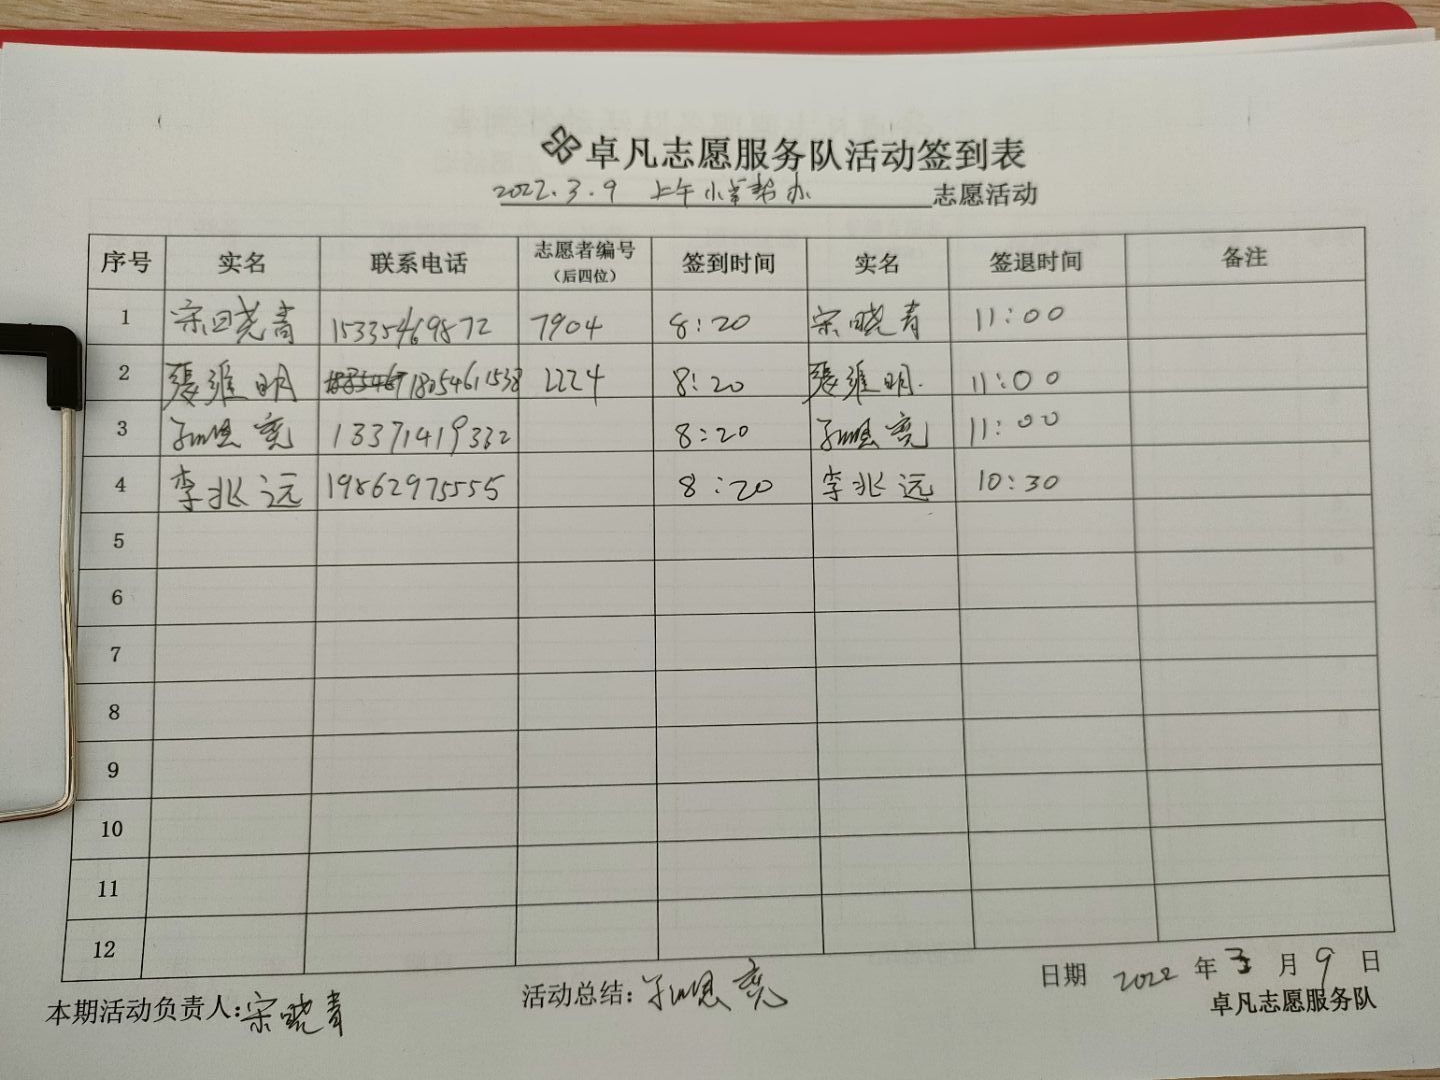 卓凡志愿服务队活动签到表
2022.3.9 上午 小羊帮办 志愿活动
序号 实名 联系电话 志愿者编号（后四位） 签到时间 实名 签退时间 备注
1 宋晓青 15335469872 7904 8:20 宋晓青 11:00
2 张维明 18054611538 2224 8:20 张维明. 11:00
3 13371419332 8:20 11:00
4 李兆远 19862975555 8:20 李兆远 10:30
5
6
7
8
9
10
11
12
本期活动负责人:宋晓青 活动总结: 日期 2022 年 3 月 9 日
卓凡志愿服务队